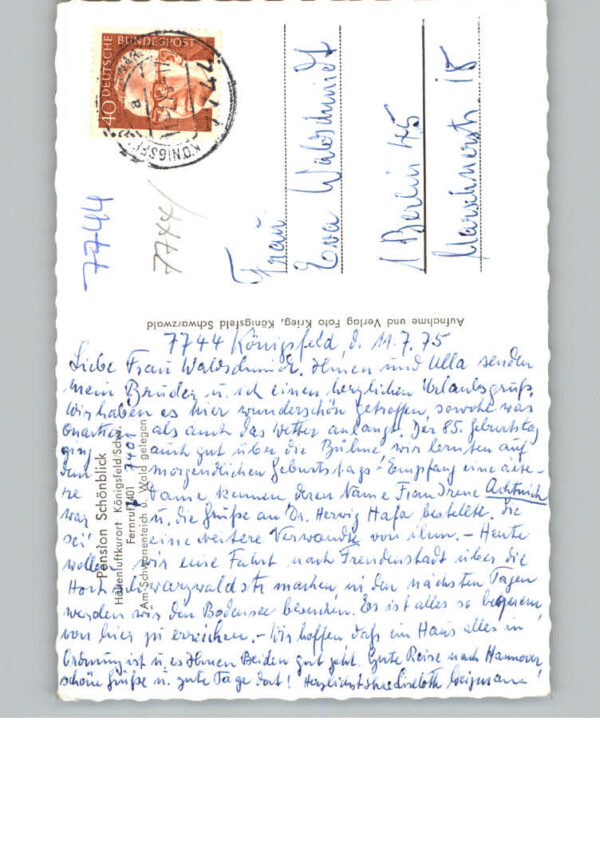 DEUTSCHE BUNDESPOST
40
7744
KÖNIGSFELD
7744
7744
Frau
Eva Waldschmidt
1 Berlin 45
Marschnerstr. 15
Aufnahme und Verlag Foto Krieg, Königsfeld Schwarzwald
Pension Schönblick
Höhenluftkurort Königsfeld/Schw.
Fernruf 7401
7401
Am Schwanenteich u. Wald gelegen
7744 Königsfeld, d. 11.7.75
Liebe Frau Waldschmidt. Ihnen und Ulla senden
mein Bruder u. ich einen herzlichen Urlaubsgruß.
Wir haben es hier wunderschön getroffen, sowohl was
Quartier als auch das Wetter anlangt. Der 85. Geburtstag
ging auch gut über die Bühne, wir lernten auf
dem morgendlichen Geburtstags-Empfang eine älte-
re Dame kennen deren Name Frau Irene
war u. die Grüße an Dr. Herwig Hafa bestellte. Sie
sei eine weitere Verwandte von ihm. – Heute
wollen wir eine Fahrt nach Freudenstadt über die
Hochschwarzwaldstr. machen, in den nächsten Tagen
werden wir den Bodensee besuchen. Es ist alles so bequem
von hier zu erreichen. – Wir hoffen daß im Haus alles in
Ordnung ist u. es Ihnen Beiden gut geht. Gute Reise nach Hannover,
schöne Grüße u. gute Tage dort! Herzlichst Ihre Liselotte